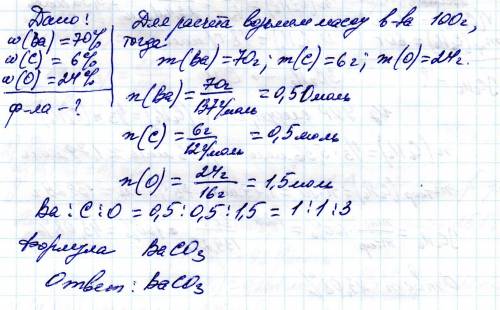 Дано:
ω(Ba) = 70%
ω(C) = 6%
ω(O) = 24%
ф-ла - ?
Для расчета возьмем массу в-ва 100г,
тогда
m(Ba) = 70г; m(C) = 6г; m(O) = 24г.
n(Ba) = 70г / 137г/моль = 0,50моль
n(C) = 6г / 12г/моль = 0,5моль
n(O) = 24г / 16г = 1,5моль
Ba : C : O = 0,5 : 0,5 : 1,5 = 1 : 1 : 3
Формула BaCO₃
Ответ: BaCO₃